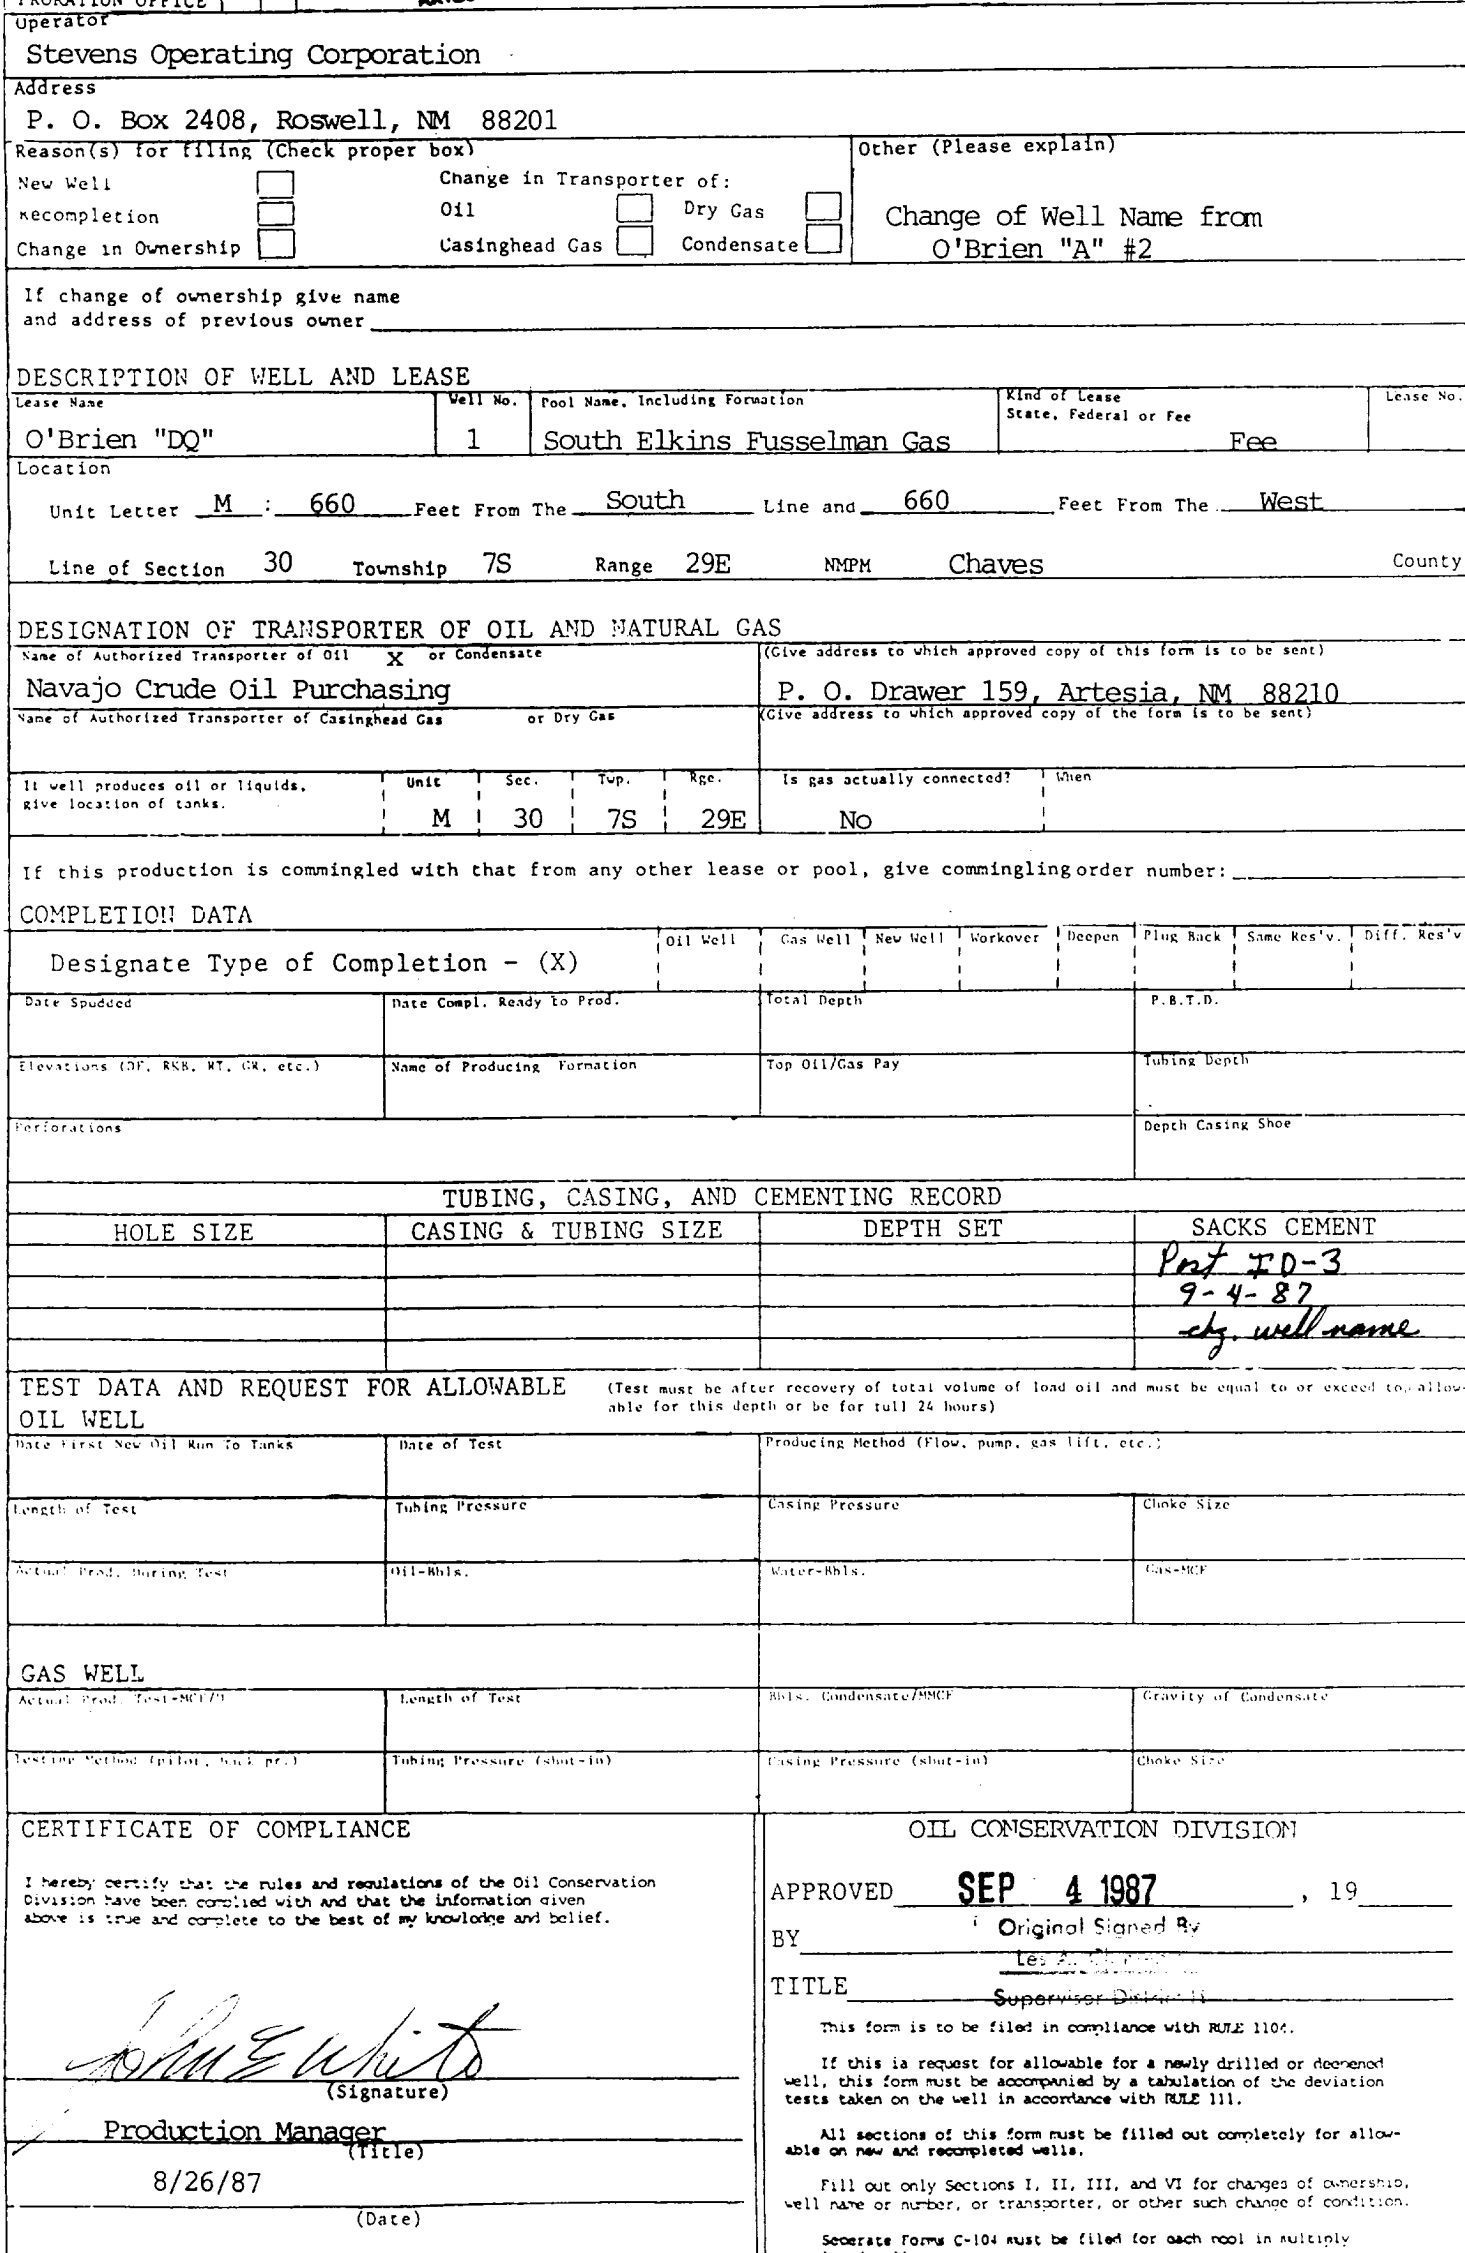 PRORATION OFFICE
Operator
Stevens Operating Corporation
Address
P. O. Box 2408, Roswell, NM 88201
Reason(s) for filing (Check proper box)
Other (Please explain)
New Well
Change in Transporter of:
Recompletion
Oil
Dry Gas
Change of Well Name from
Change in Ownership
Casinghead Gas
Condensate
O'Brien "A" #2
If change of ownership give name
and address of previous owner
DESCRIPTION OF WELL AND LEASE
Lease Name
Well No.
Pool Name, Including Formation
Kind of Lease
State, Federal or Fee
Lease No.
O'Brien "DQ"
1
South Elkins Fusselman Gas
Fee
Location
Unit Letter M : 660 Feet From The South Line and 660 Feet From The West
Line of Section 30 Township 7S Range 29E NMPM Chaves County
DESIGNATION OF TRANSPORTER OF OIL AND NATURAL GAS
Name of Authorized Transporter of Oil X or Condensate
(Give address to which approved copy of this form is to be sent)
Navajo Crude Oil Purchasing
P. O. Drawer 159, Artesia, NM 88210
Name of Authorized Transporter of Casinghead Gas or Dry Gas
(Give address to which approved copy of the form is to be sent)
If well produces oil or liquids,
give location of tanks.
Unit Sec. Twp. Rge.
Is gas actually connected? When
M 30 7S 29E
No
If this production is commingled with that from any other lease or pool, give commingling order number:
COMPLETION DATA
Designate Type of Completion - (X)
Oil Well Gas Well New Well Workover Deepen Plug Back Same Res'v. Diff. Res'v
Date Spudded
Date Compl. Ready to Prod.
Total Depth
P.B.T.D.
Elevations (DF, RKB, RT, GR, etc.)
Name of Producing Formation
Top Oil/Gas Pay
Tubing Depth
Perforations
Depth Casing Shoe
TUBING, CASING, AND CEMENTING RECORD
HOLE SIZE
CASING & TUBING SIZE
DEPTH SET
SACKS CEMENT
Post ID-3
9-4-87
chg. well name
TEST DATA AND REQUEST FOR ALLOWABLE
(Test must be after recovery of total volume of load oil and must be equal to or exceed top allow-
able for this depth or be for full 24 hours)
OIL WELL
Date First New Oil Run To Tanks
Date of Test
Producing Method (Flow, pump, gas lift, etc.)
Length of Test
Tubing Pressure
Casing Pressure
Choke Size
Actual Prod. During Test
Oil-Bbls.
Water-Bbls.
Gas-MCF
GAS WELL
Actual Prod. Test-MCF/D
Length of Test
Bbls. Condensate/MMCF
Gravity of Condensate
Testing Method (pitot, back pr.)
Tubing Pressure (shut-in)
Casing Pressure (shut-in)
Choke Size
CERTIFICATE OF COMPLIANCE
I hereby certify that the rules and regulations of the Oil Conservation
Division have been complied with and that the information given
above is true and complete to the best of my knowledge and belief.
John E White
(Signature)
Production Manager
(Title)
8/26/87
(Date)
OIL CONSERVATION DIVISION
APPROVED SEP 4 1987 , 19
BY Original Signed By
Les A.
TITLE Supervisor District II
This form is to be filed in compliance with RULE 1104.
If this ia request for allowable for a newly drilled or deepened
well, this form must be accompanied by a tabulation of the deviation
tests taken on the well in accordance with RULE 111.
All sections of this form must be filled out completely for allow-
able on new and recompleted wells.
Fill out only Sections I, II, III, and VI for changes of ownership,
well name or number, or transporter, or other such change of condition.
Seperate Forms C-104 must be filed for each pool in multiply